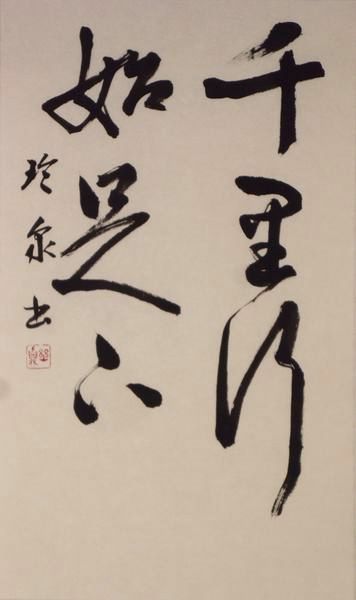 千里行
始足下
玲泉书